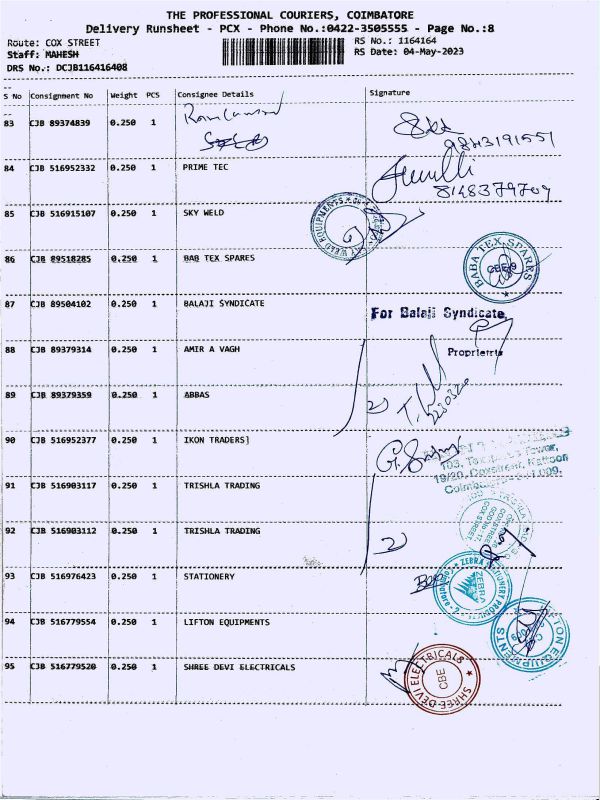 THE PROFESSIONAL COURIERS, COIMBATORE
Delivery Runsheet - PCX - Phone No.:0422-3505555 - Page No.:8
Route: COX STREET
RS No.: 1164164
Staff: MAHESH
RS Date: 04-May-2023
DRS No.: DCJB116416408
S No Consignment No Weight PCS Consignee Details Signature
83 CJB 89374839 0.250 1
9843191551
84 CJB 516952332 0.250 1 PRIME TEC
8148379709
85 CJB 516915107 0.250 1 SKY WELD
SKY WELD EQUIPMENTS
86 CJB 89518285 0.250 1 BAB TEX SPARES
BABA TEX SPARES
87 CJB 89504102 0.250 1 BALAJI SYNDICATE
For Balaji Syndicate,
Proprietrix
88 CJB 89379314 0.250 1 AMIR A VAGH
89 CJB 89379359 0.250 1 ABBAS
90 CJB 516952377 0.250 1 IKON TRADERS]
91 CJB 516903117 0.250 1 TRISHLA TRADING
92 CJB 516903112 0.250 1 TRISHLA TRADING
93 CJB 516976423 0.250 1 STATIONERY
ZEBRA STATIONERY PRODUCTS
ZEBRA
94 CJB 516779554 0.250 1 LIFTON EQUIPMENTS
LIFTON EQUIPMENTS
95 CJB 516779520 0.250 1 SHREE DEVI ELECTRICALS
SHREE DEVI ELECTRICALS
CBE